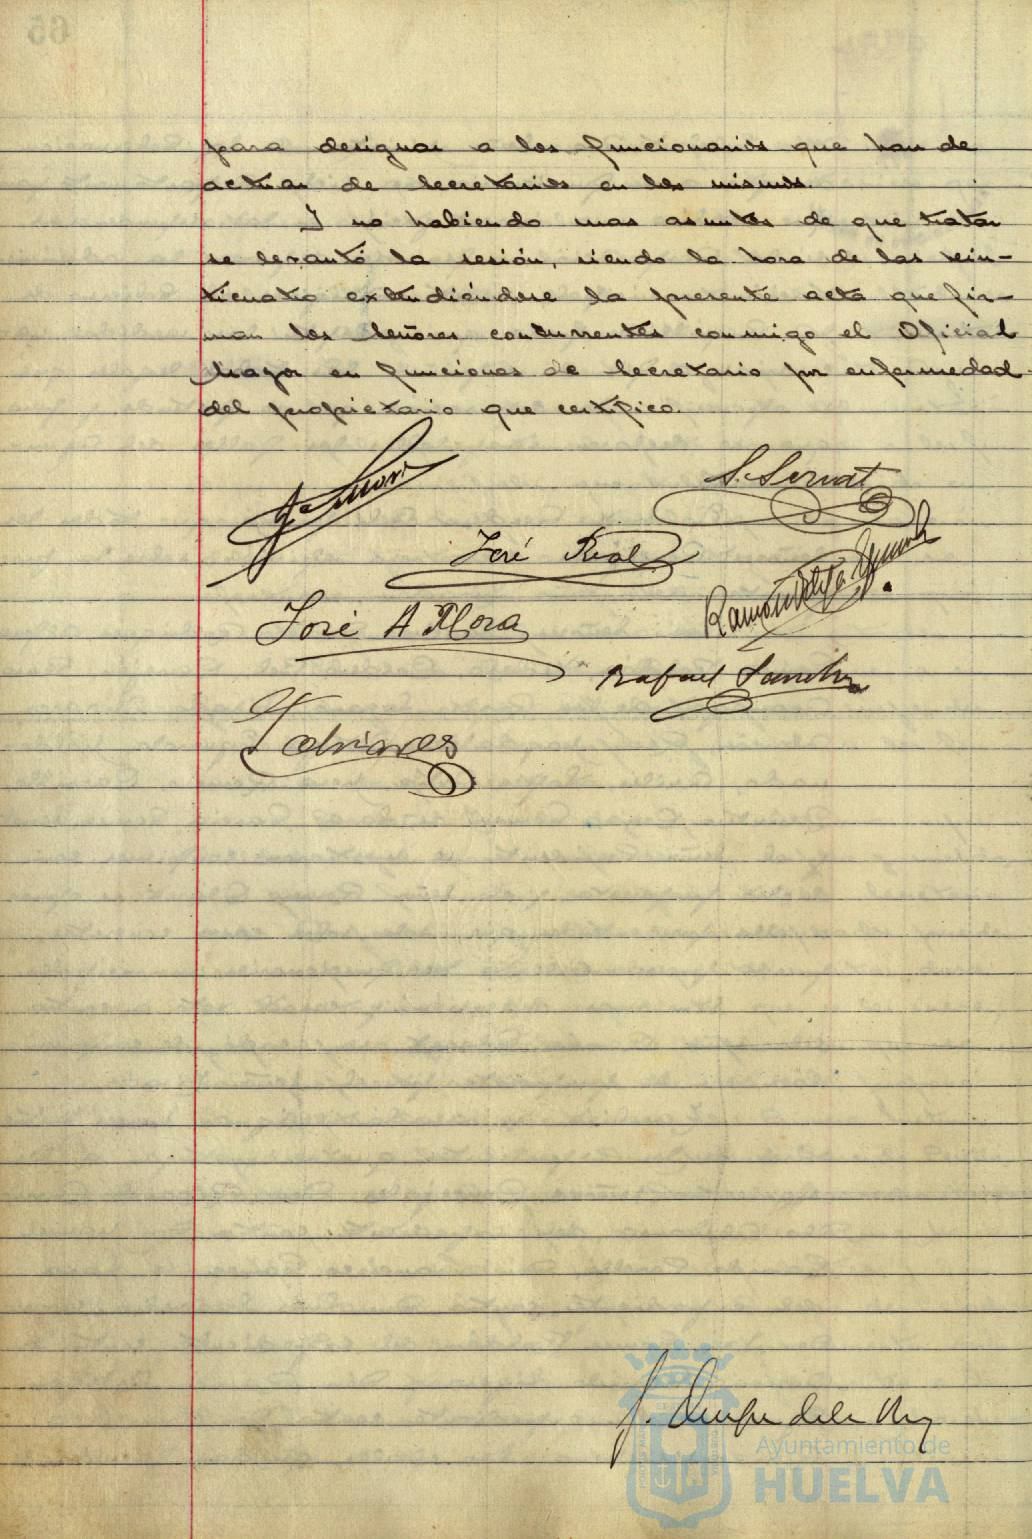 para designar a los funcionarios que han de
actuar de Secretarios en los mismos.
Y no habiendo mas asuntos de que tratar
se levantó la sesión, siendo la hora de las vein-
ticuatro extendiéndose la presente acta que fir-
man los Señores concurrentes conmigo el Oficial
Mayor en funciones de Secretario por enfermedad
del propietario que certifico.
S. Servat
José Real
Ramón
José A Mora
Rafael Sanchez
Ayuntamiento de
HUELVA